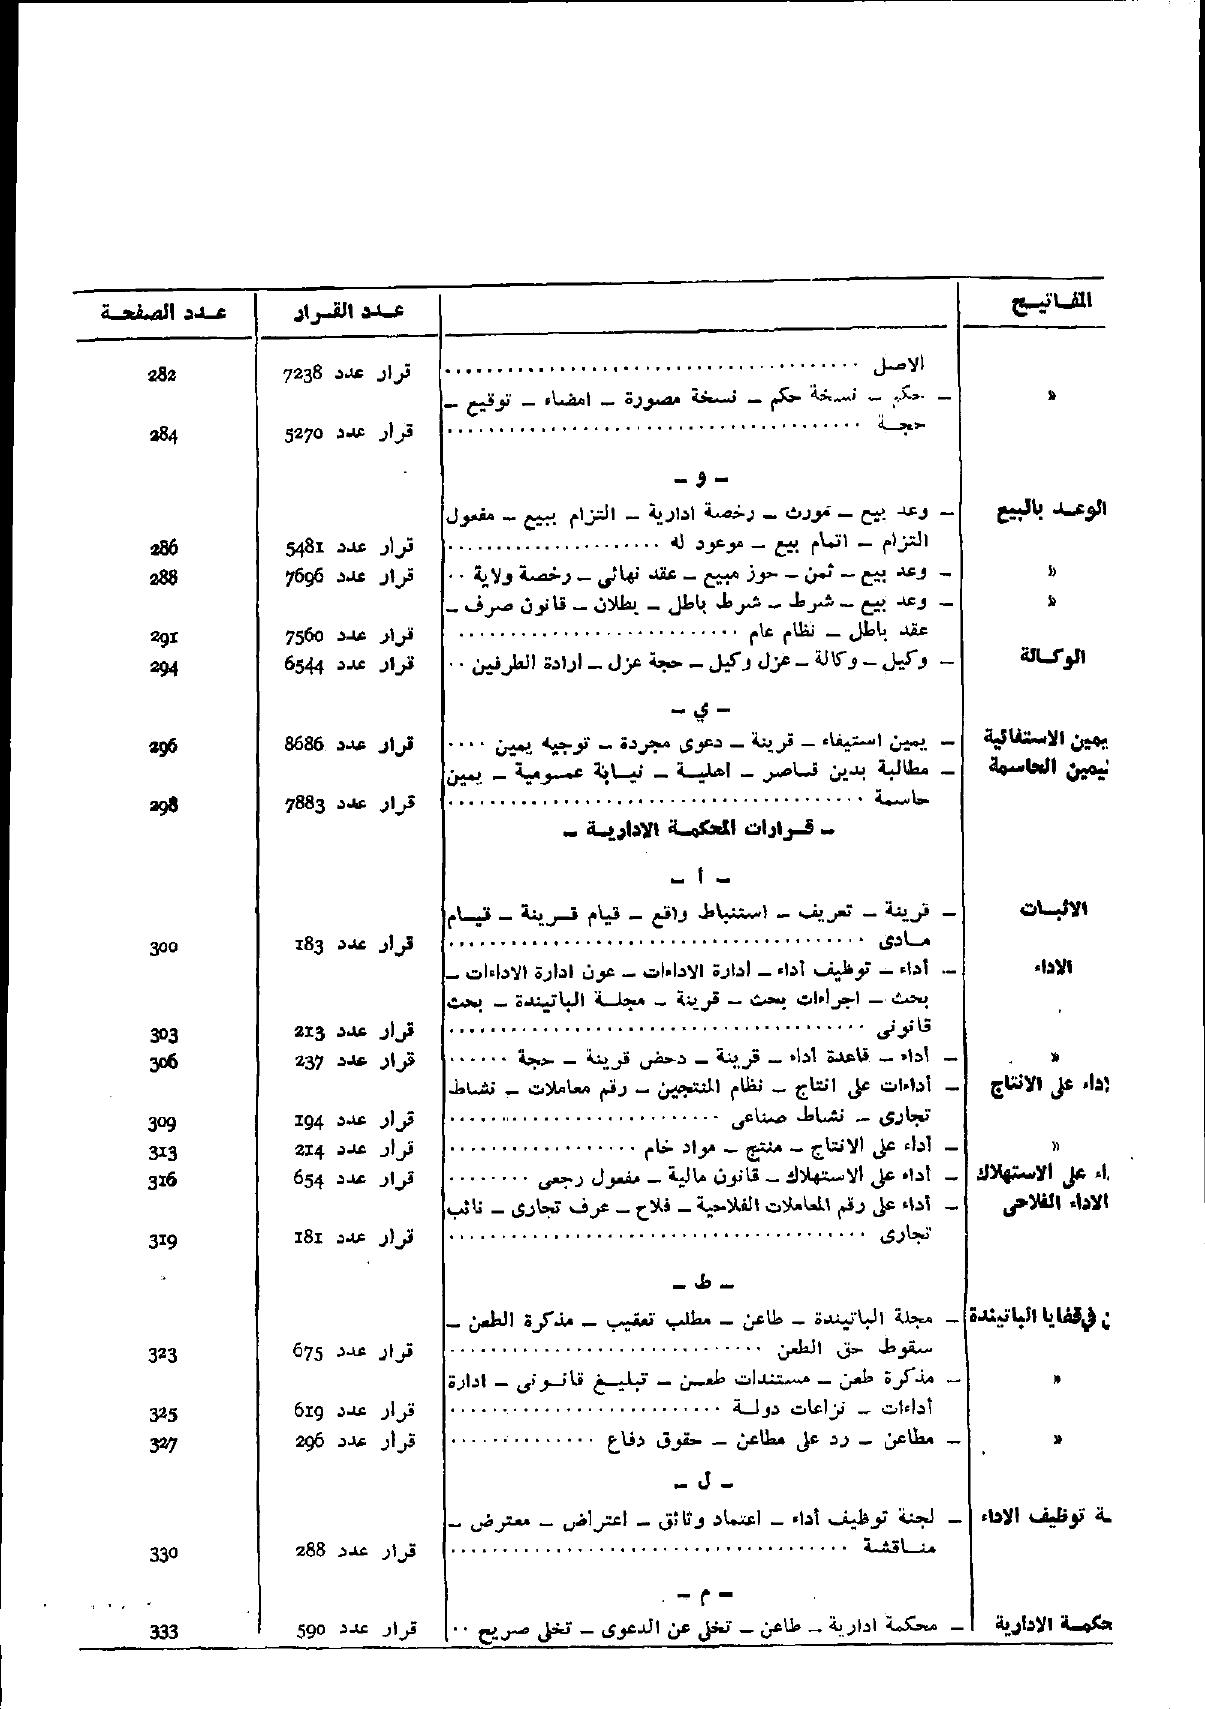 المفاتيح عدد القرار عدد الصفحة
الاصل ........ قرار عدد 7238 282
» – حكم – نسخة حكم – نسخة مصورة – امضاء – توقيع –
حجة ........ قرار عدد 5270 284
– و –
الوعد بالبيع – وعد بيع – مورث – رخصة ادارية – التزام ببيع – مفعول
التزام – اتمام بيع – موعود له ........ قرار عدد 5481 286
» – وعد بيع – ثمن – حوز مبيع – عقد نهائي – رخصة ولاية .. قرار عدد 7696 288
» – وعد بيع – شرط – شرط باطل – بطلان – قانون صرف –
عقد باطل – نظام عام ........ قرار عدد 7560 291
الوكالة – وكيل – وكالة – عزل وكيل – حجة عزل – ارادة الطرفين .. قرار عدد 6544 294
– ي –
يمين الاستفائية – يمين استيفاء – قرينة – دعوى مجردة – توجيه يمين .... قرار عدد 8686 296
ليمين الحاسمة – مطالبة بدين قاصر – اهلية – نيابة عمومية – يمين
حاسمة ........ قرار عدد 7883 298
– قرارات المحكمة الادارية –
– أ –
الاثبات – قرينة – تعريف – استنباط واقع – قيام قرينة – قيام
مادى ........ قرار عدد 183 300
الاداء – أداء – توظيف أداء – ادارة الاداءات – عون ادارة الاداءات –
بحث – اجراءات بحث – قرينة – مجلة الباتيندة – بحث
قانونى ........ قرار عدد 213 303
» – أداء – قاعدة أداء – قرينة – دحض قرينة – حجة ...... قرار عدد 237 306
إداء على الانتاج – أداءات على انتاج – نظام المنتجين – رقم معاملات – نشاط
تجارى – نشاط صناعى ........ قرار عدد 194 309
» – أداء على الانتاج – منتج – مواد خام ........ قرار عدد 214 313
اء على الاستهلاك – أداء على الاستهلاك – قانون مالية – مفعول رجعى ........ قرار عدد 654 316
الاداء الفلاحى – أداء على رقم المعاملات الفلاحية – فلاح – عرف تجارى – نائب
تجارى ........ قرار عدد 181 319
– ط –
ن في قضايا الباتيندة – مجلة الباتيندة – طاعن – مطلب تعقيب – مذكرة الطعن –
سقوط حق الطعن ........ قرار عدد 675 323
» – مذكرة طعن – مستندات طعن – تبليغ قانونى – ادارة
أداءات – نزاعات دولة ........ قرار عدد 619 325
» – مطاعن – رد على مطاعن – حقوق دفاع ........ قرار عدد 296 327
– ل –
ـة توظيف الاداء – لجنة توظيف أداء – اعتماد وثائق – اعتراض – معترض –
مناقشة ........ قرار عدد 288 330
– م –
حكمة الادارية – محكمة ادارية – طاعن – تخلى عن الدعوى – تخلى صريح .. قرار عدد 590 333